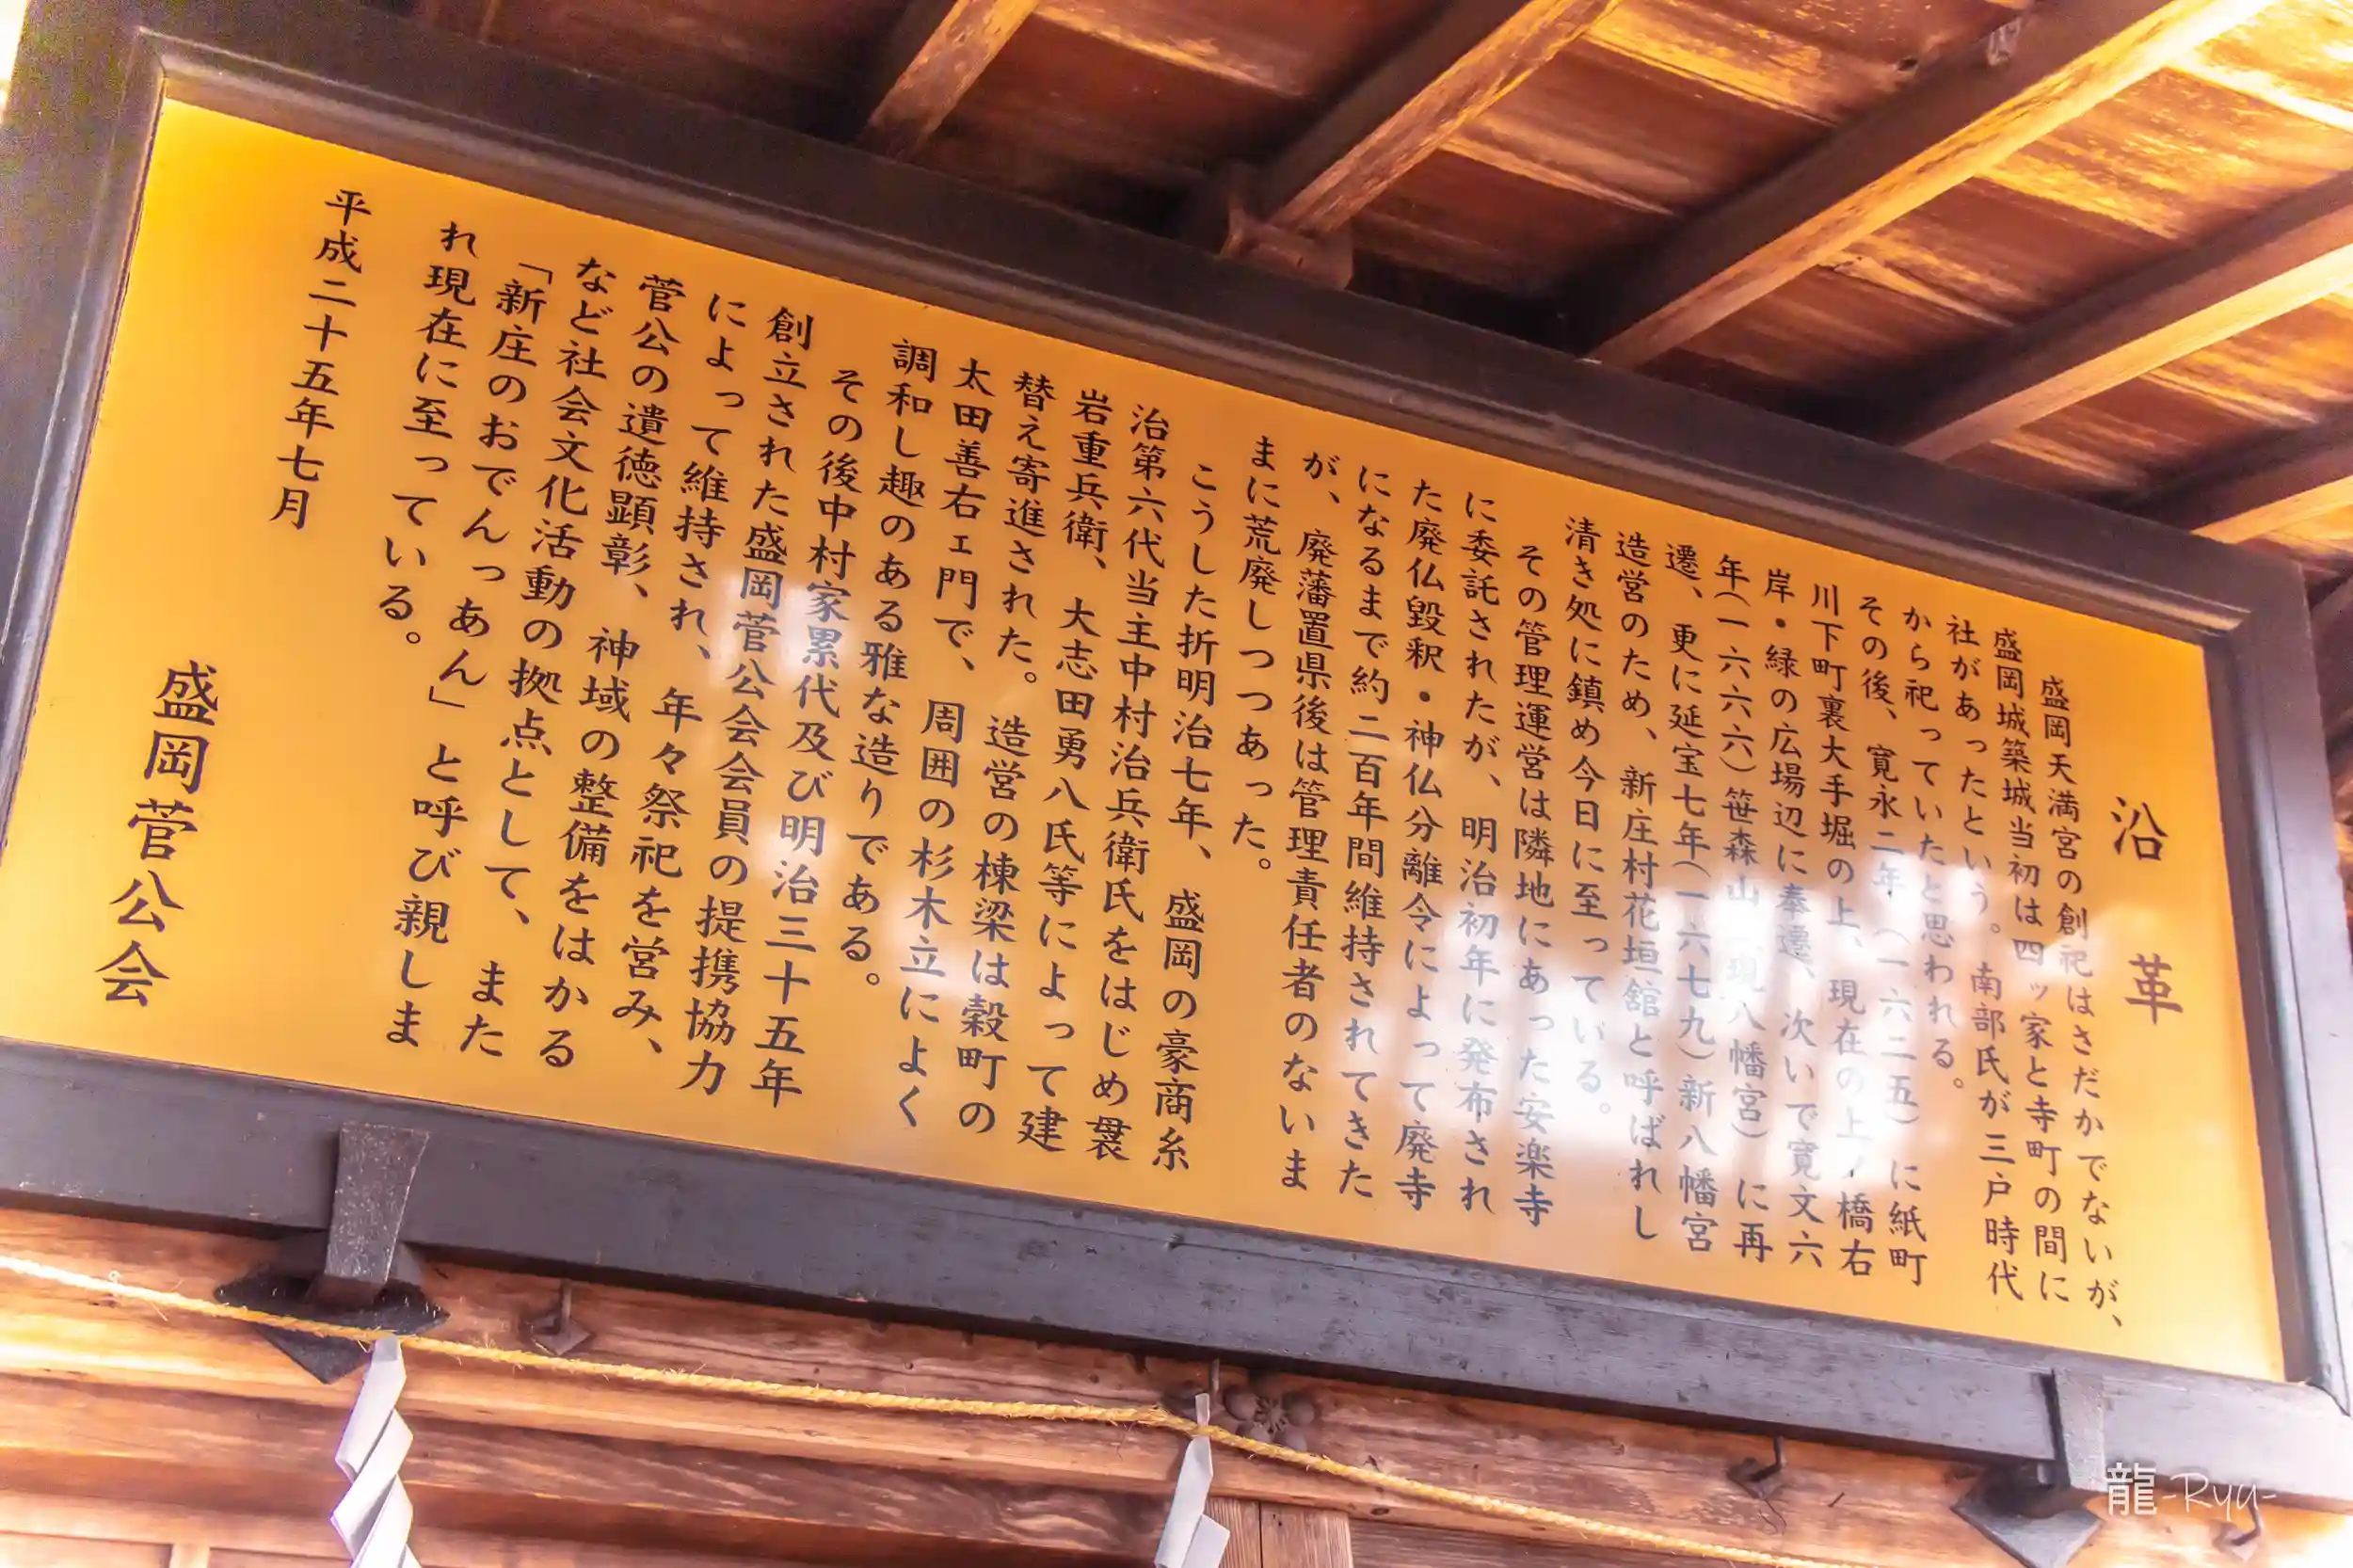 沿革
盛岡天満宮の創祀はさだかでないが、
盛岡城築城当初は四ッ家と寺町の間に
社があったという。南部氏が三戸時代
から祀っていたと思われる。
その後、寛永二年（一六二五）に紙町
川下町裏大手堀の上、現在の上ノ橋右
岸・緑の広場辺に奉遷、次いで寛文六
年（一六六六）笹森山（現八幡宮）に再
遷、更に延宝七年（一六七九）新八幡宮
造営のため、新庄村花垣舘と呼ばれし
清き処に鎮め今日に至っている。
その管理運営は隣地にあった安楽寺
に委託されたが、明治初年に発布され
た廃仏毀釈・神仏分離令によって廃寺
になるまで約二百年間維持されてきた
が、廃藩置県後は管理責任者のないま
まに荒廃しつつあった。
こうした折明治七年、盛岡の豪商糸
治第六代当主中村治兵衛氏をはじめ袰
岩重兵衛、大志田勇八氏等によって建
替え寄進された。造営の棟梁は穀町の
太田善右ェ門で、周囲の杉木立によく
調和し趣のある雅な造りである。
その後中村家累代及び明治三十五年
創立された盛岡菅公会会員の提携協力
によって維持され、年々祭祀を営み、
菅公の遺徳顕彰、神域の整備をはかる
など社会文化活動の拠点として、また
「新庄のおでんっあん」と呼び親しま
れ現在に至っている。
平成二十五年七月
盛岡菅公会
龍-Ryu-